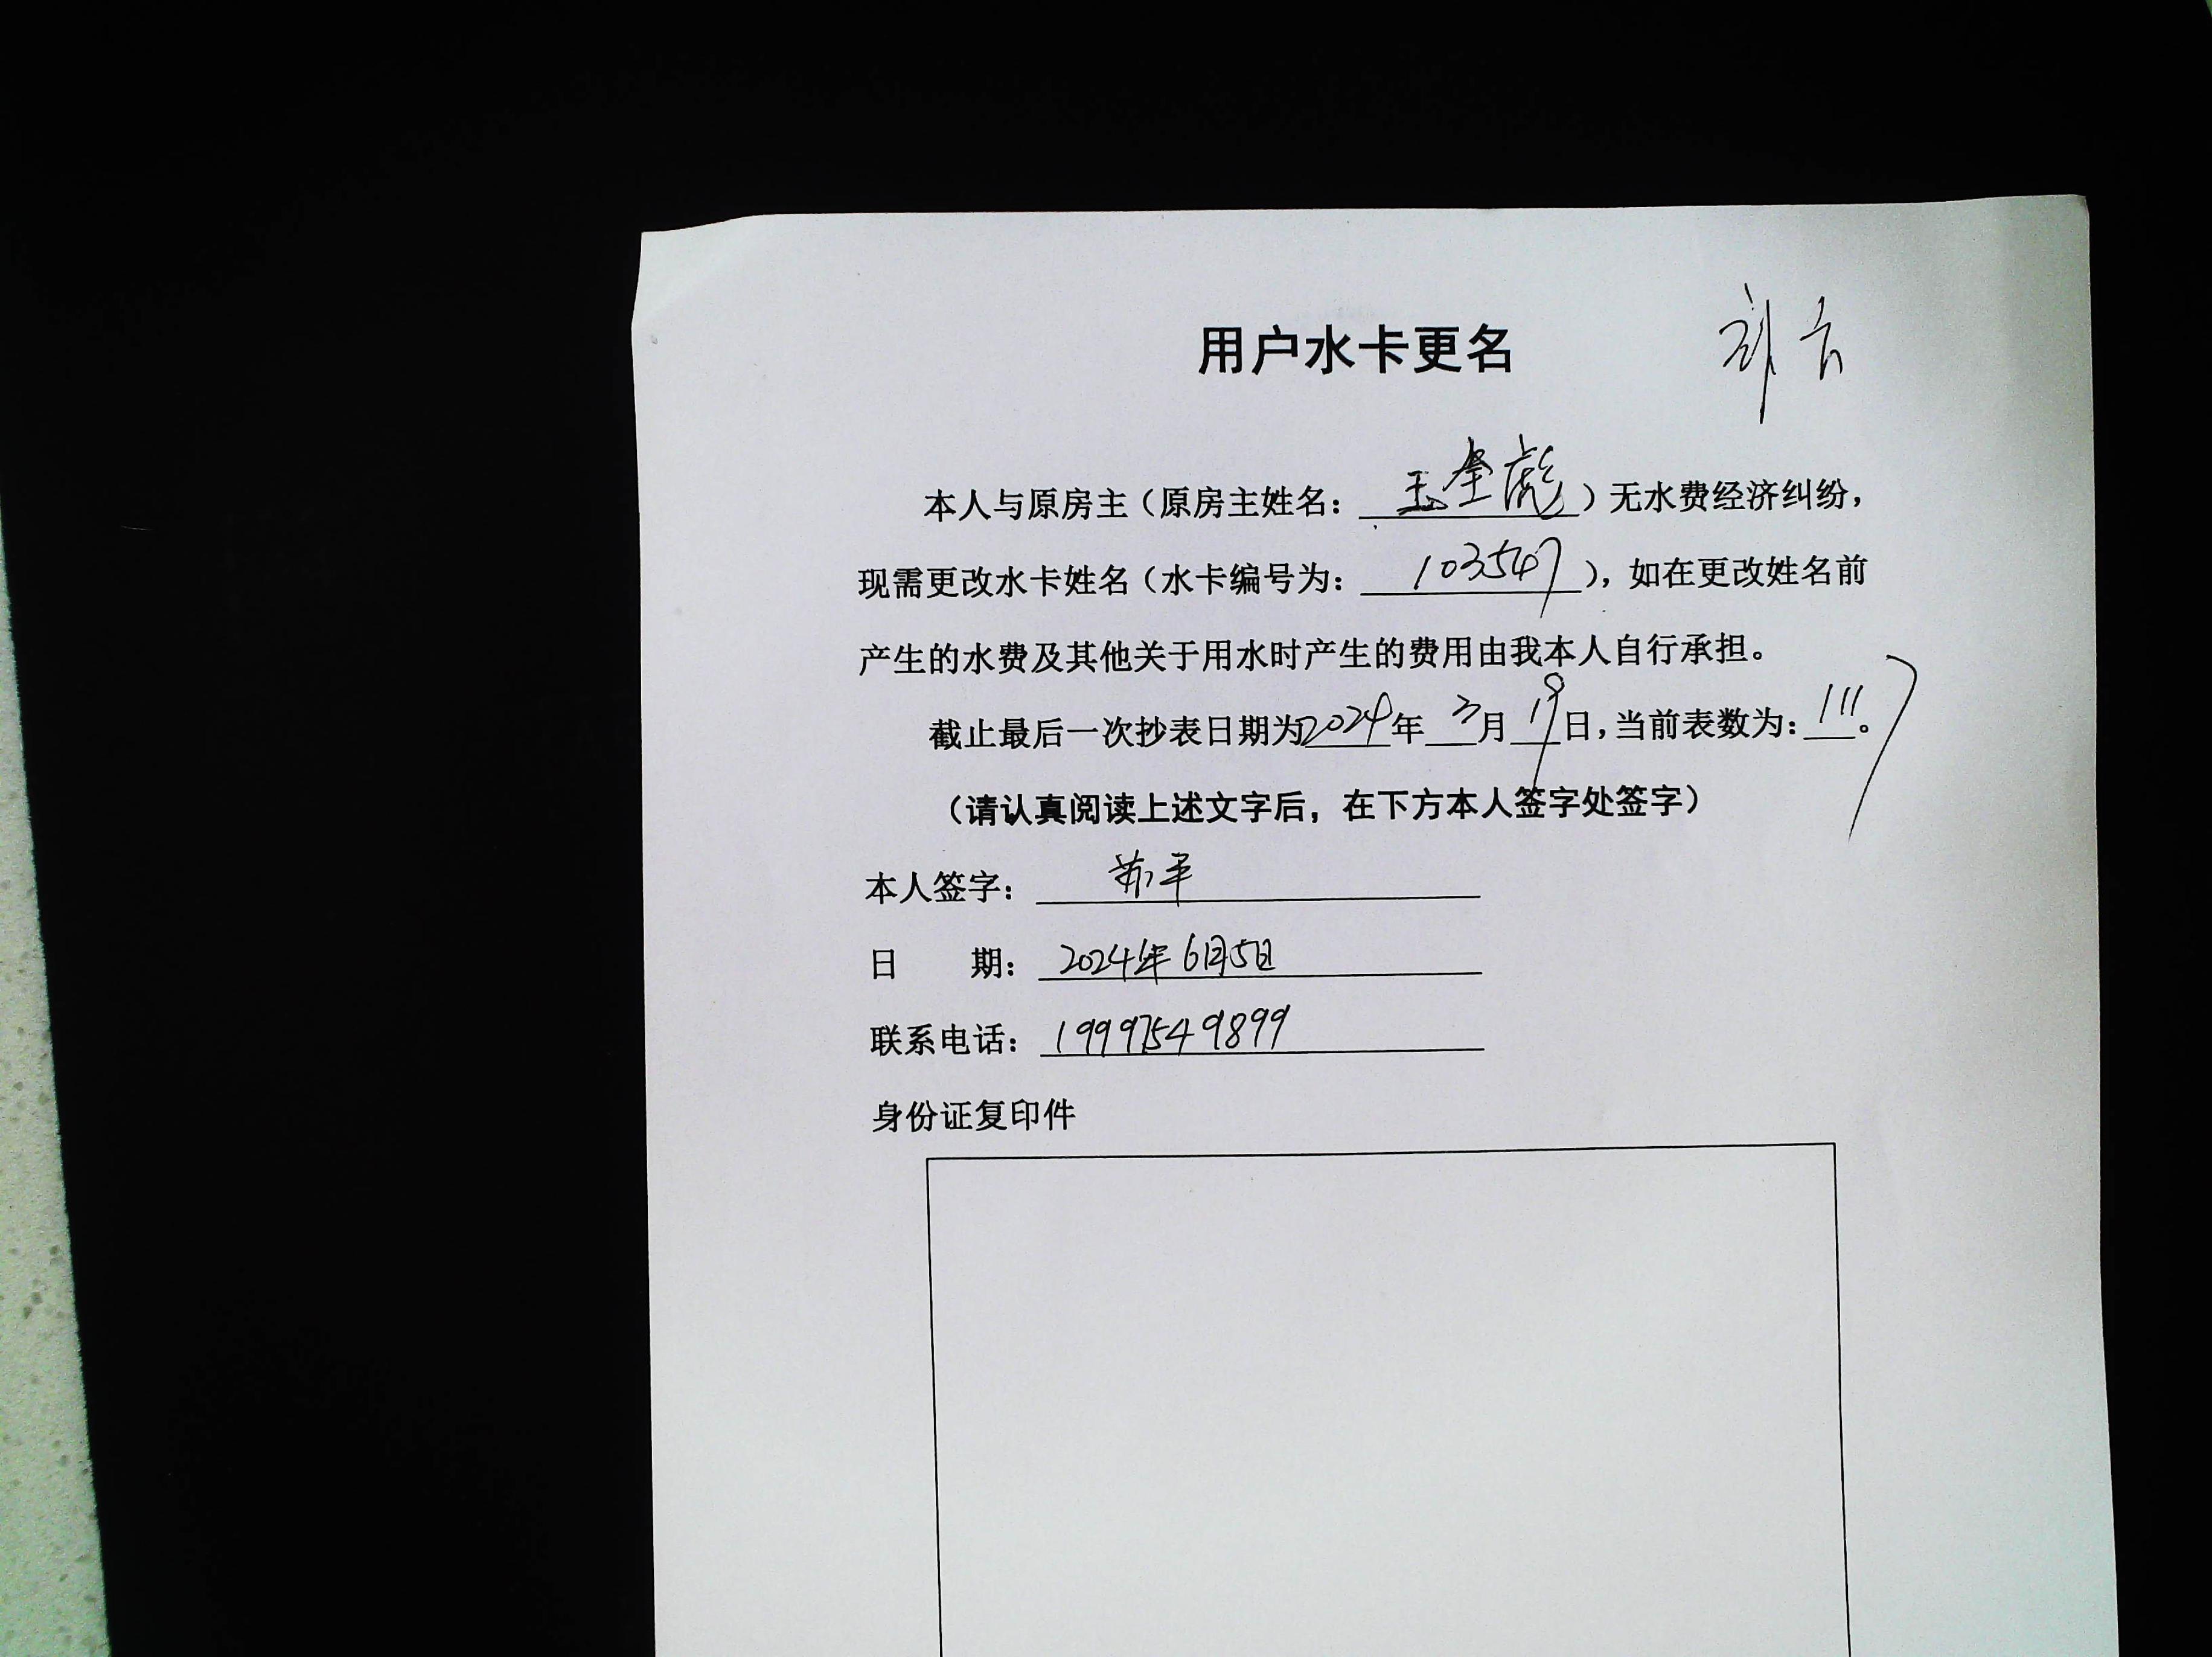 用户水卡更名
本人与原房主（原房主姓名：王奎彪）无水费经济纠纷，
现需更改水卡姓名（水卡编号为：103547），如在更改姓名前
产生的水费及其他关于用水时产生的费用由我本人自行承担。
截止最后一次抄表日期为2024年3月19日，当前表数为：111。
（请认真阅读上述文字后，在下方本人签字处签字）
本人签字：苏平
日 期：2024年6月5日
联系电话：19997549899
身份证复印件